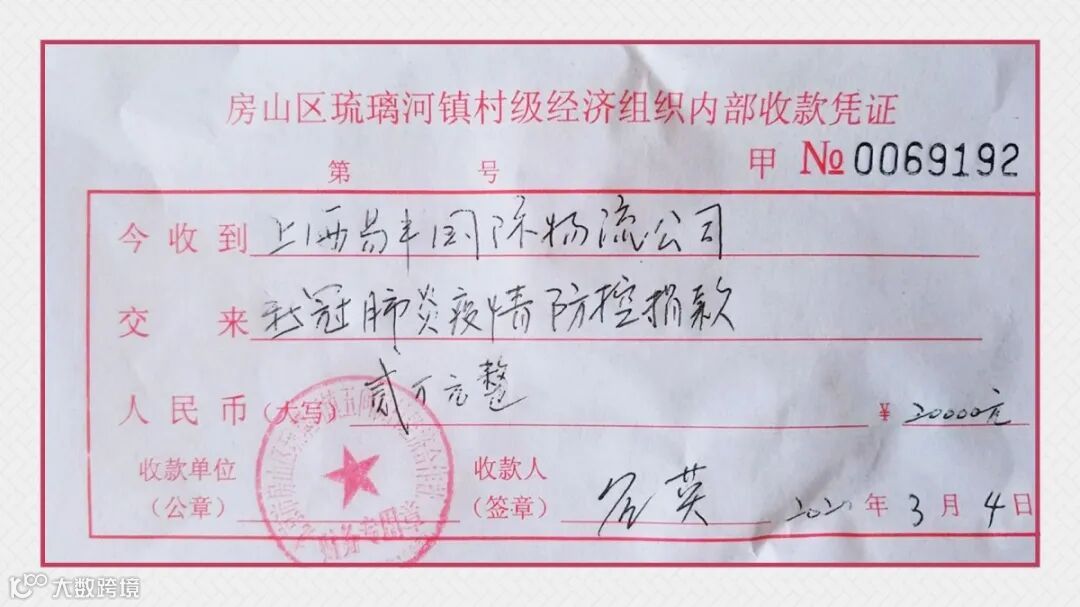 房山区琉璃河镇村级经济组织内部收款凭证
第 号 甲 № 0069192
今收到 上海易丰国际物流公司
交来 新冠肺炎疫情防控捐款
人民币(大写) 贰万元整 ¥ 20000元
收款单位 收款人
(公章) (签章) 英 2020年3月4日
财务专用章
大数跨境